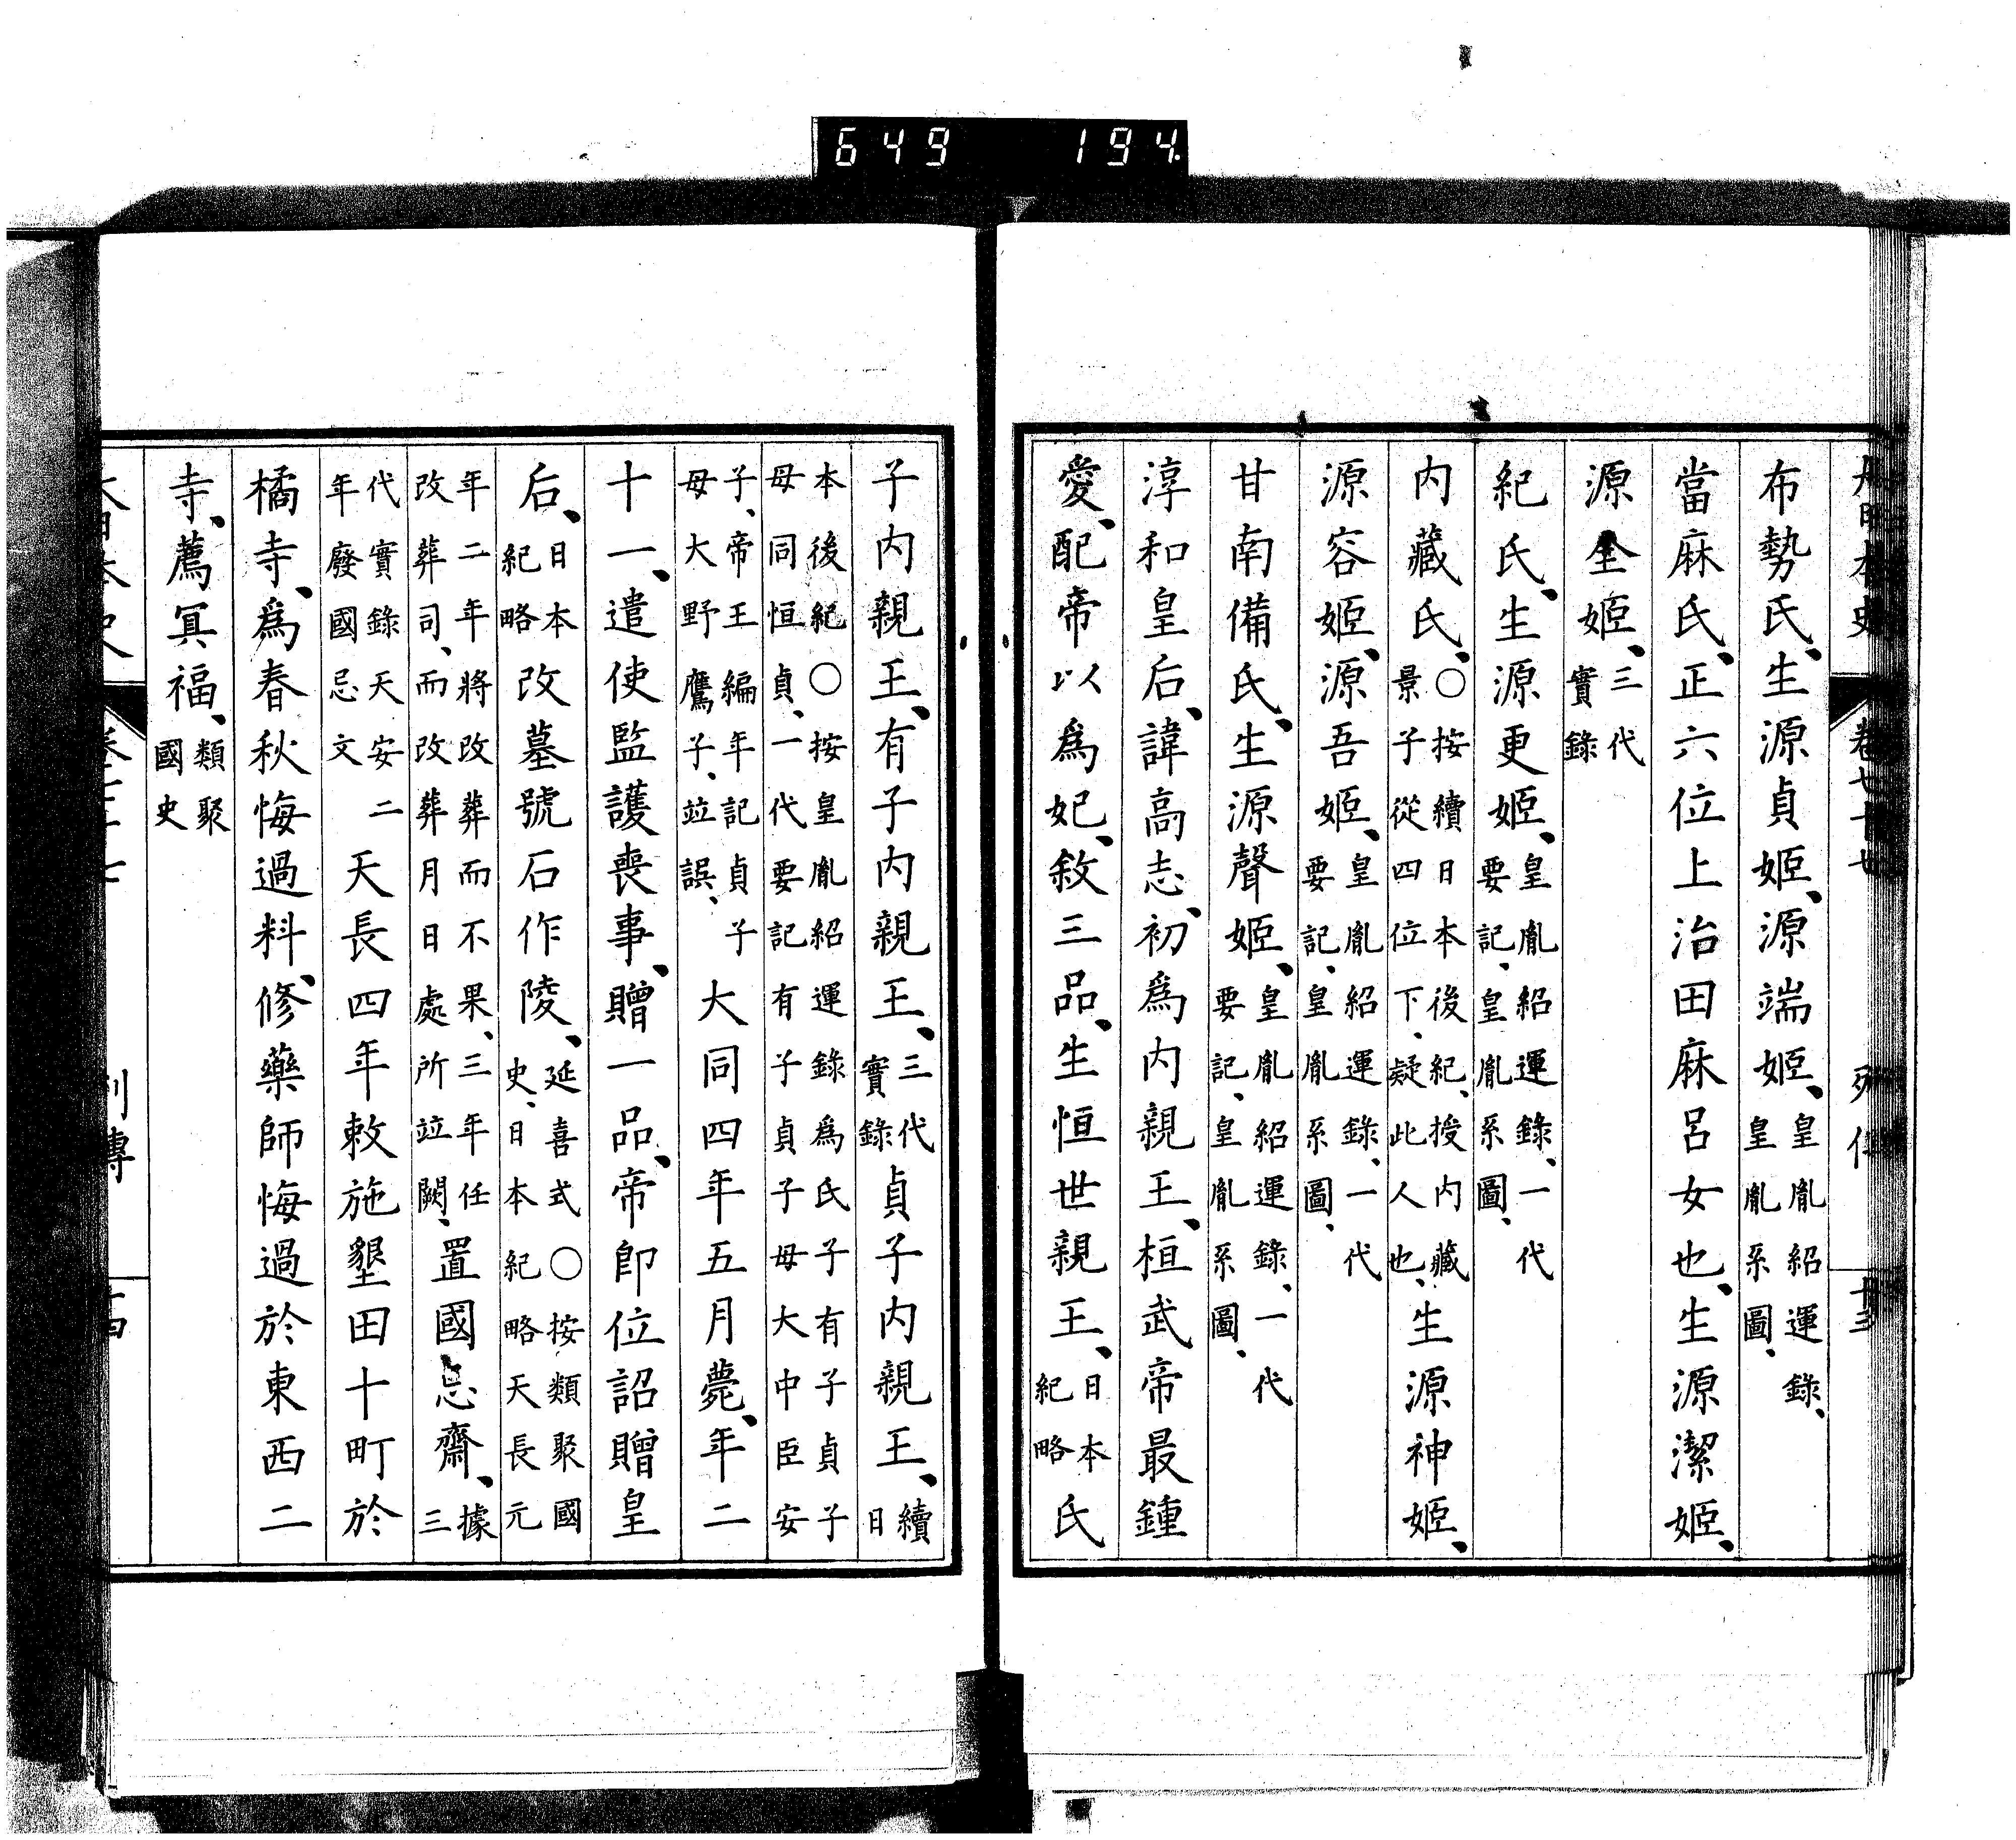 649 194
大日本史 卷七十七 列傳 十三
布勢氏、生源貞姬、源端姬、皇胤紹運錄、皇胤系圖、
當麻氏、正六位上治田麻呂女也、生源潔姬、
源全姬、三代實錄
紀氏、生源更姬、皇胤紹運錄、一代要記、皇胤系圖、
内藏氏、○按續日本後紀、授内藏景子從四位下、疑此人也、生源神姬、
源容姬、源吾姬、皇胤紹運錄、一代要記、皇胤系圖、
甘南備氏、生源聲姬、皇胤紹運錄、一代要記、皇胤系圖、
淳和皇后、諱高志、初爲内親王、桓武帝最鍾
愛、配帝以爲妃、敘三品、生恒世親王、日本紀略氏
子内親王、有子内親王、三代實錄貞子内親王、續日
本後紀○按皇胤紹運錄爲氏子有子貞子母同恒貞、一代要記有子貞子母大中臣安
子、帝王編年記貞子母大野鷹子、竝誤、大同四年五月薨、年二
十一、遣使監護喪事、贈一品、帝卽位詔贈皇
后、日本紀略改墓號石作陵、延喜式○按類聚國史、日本紀略天長元
年二年將改葬而不果、三年任改葬司、而改葬月日處所竝闕、置國忌齋、據三
代實錄天安二年廢國忌文天長四年敕施墾田十町於
橘寺、爲春秋悔過料、修藥師悔過於東西二
寺、薦冥福、類聚國史
大日本史 卷七十七 列傳 十四